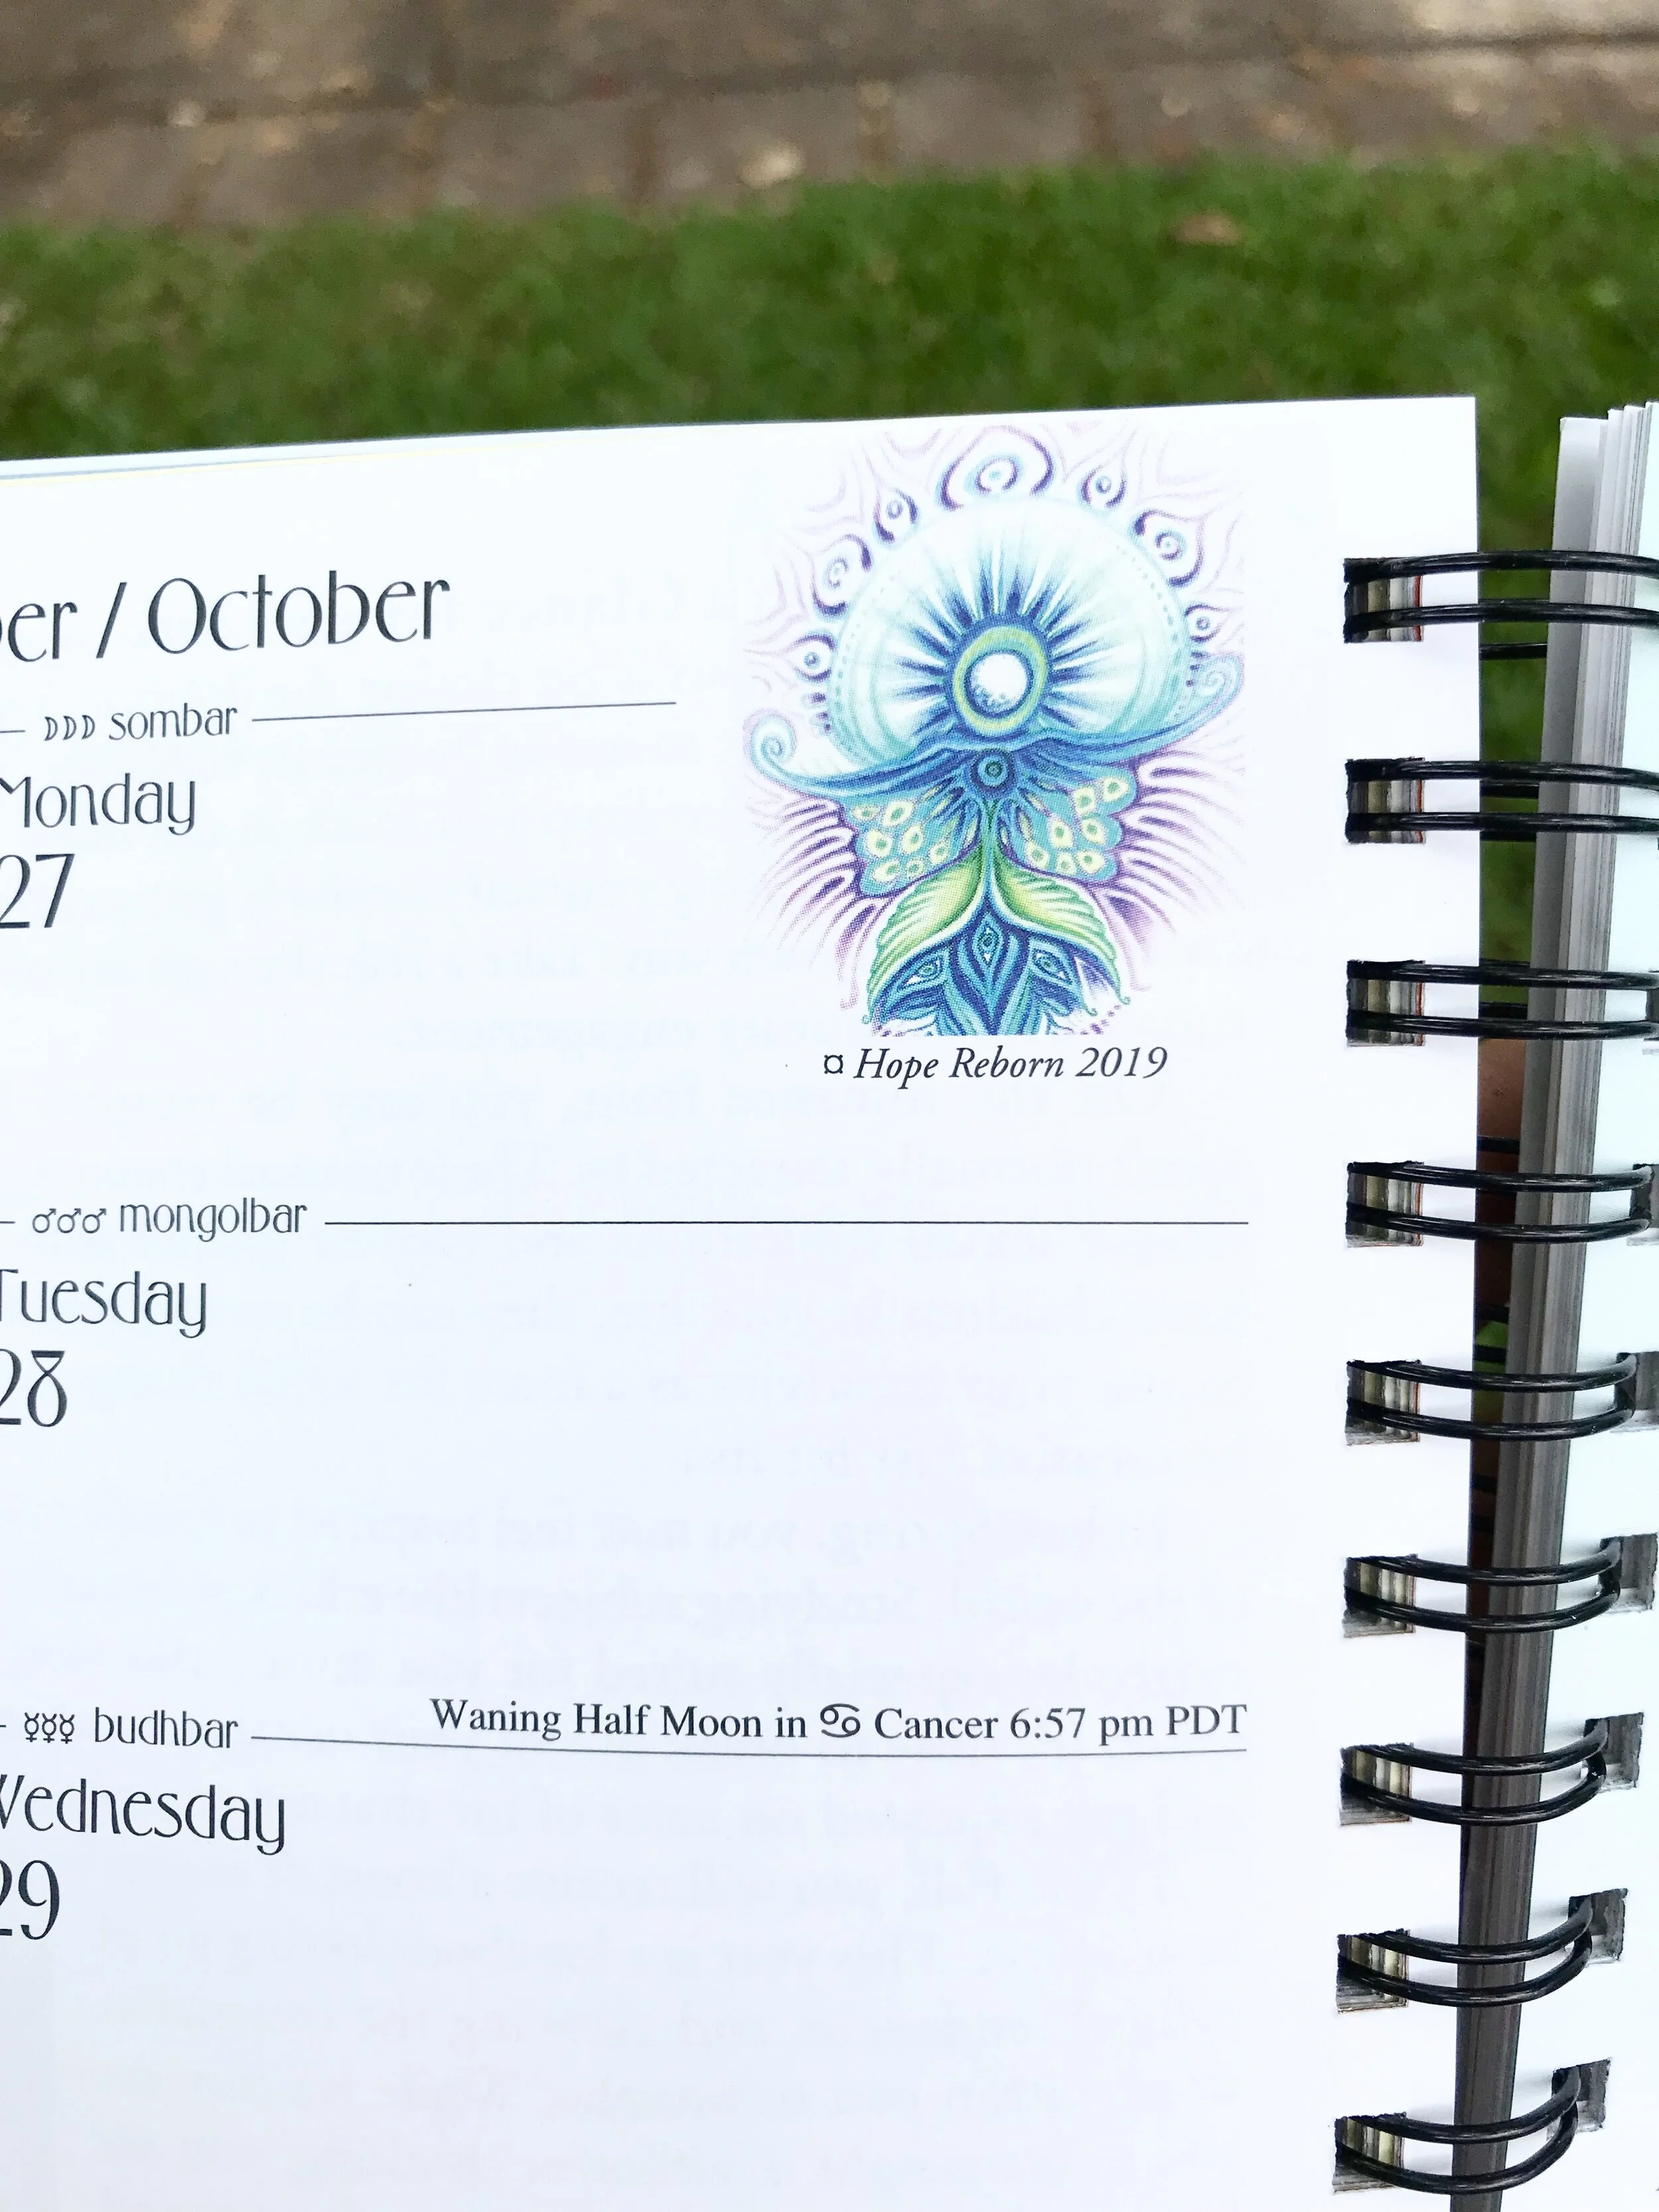 er / October
DDD sombar
Monday
27
¤ Hope Reborn 2019
♂♂♂ mongolbar
Tuesday
28
☿☿☿ budhbar
Waning Half Moon in ♋ Cancer 6:57 pm PDT
Wednesday
29